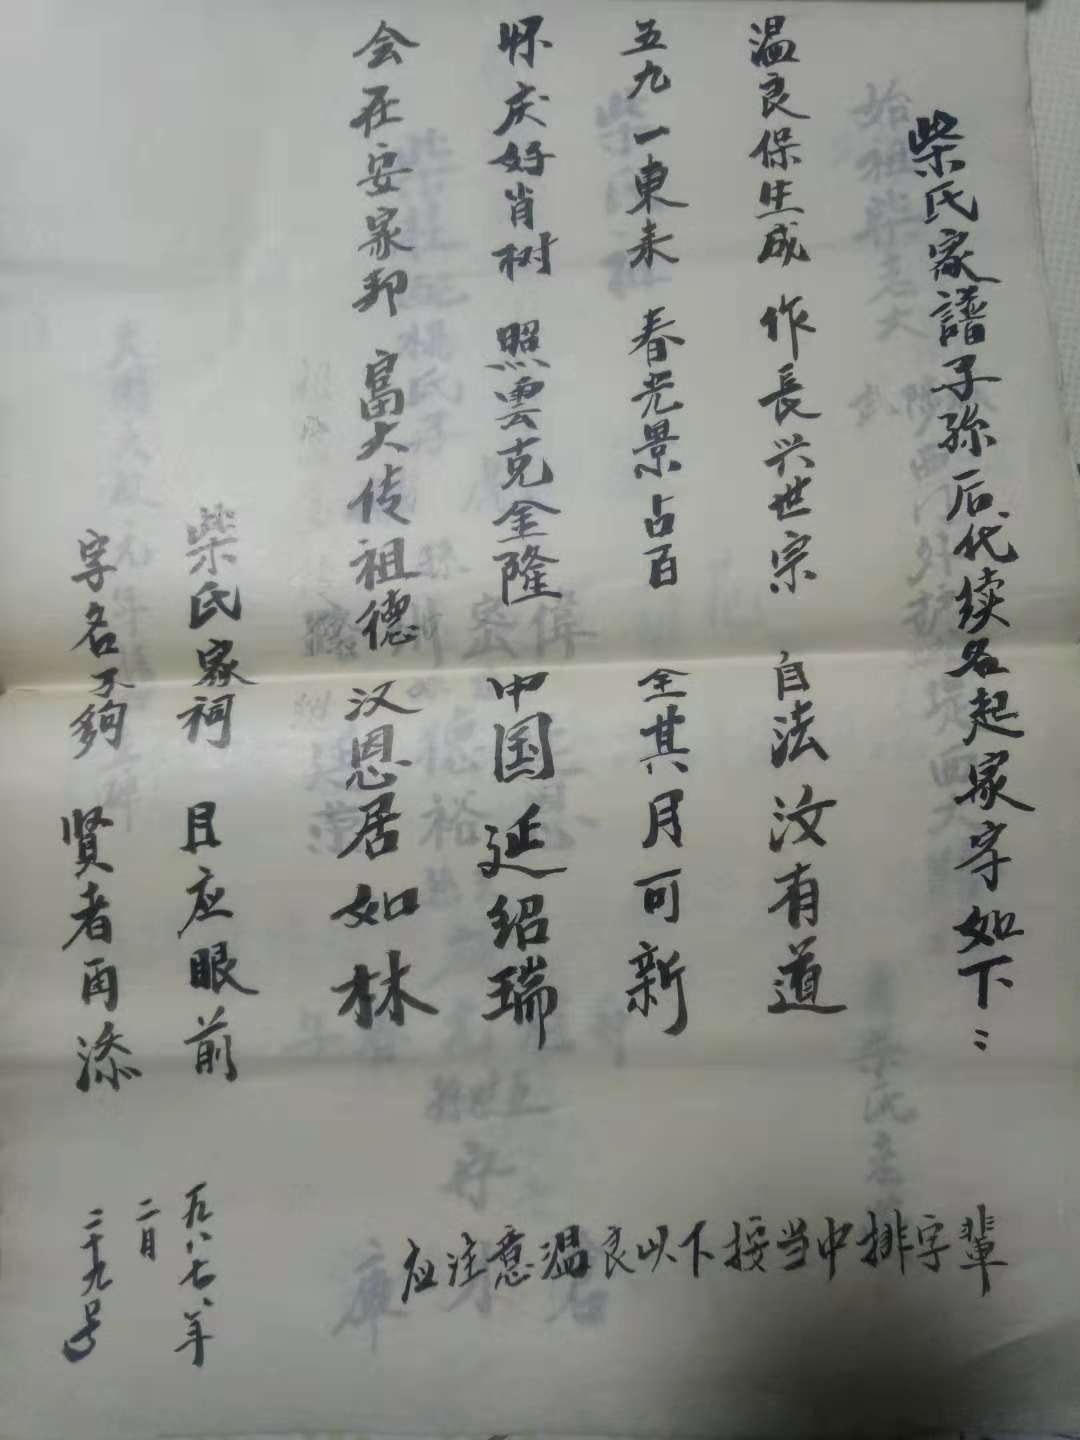 柴氏家譜子弥后代续名起家字如下：
温良保生成 作長兴世宗 自法汝有道
五九一東来 春光景占百 全其月可新
怀庆好肖树 照雲克金隆 中国延绍瑞
会在安家邦 富大传祖德 汉恩居如林
柴氏家祠 且应眼前
字名不夠 贤者再添
一九八七年
二月
二十九号
应注意温良以下按当中排字輩